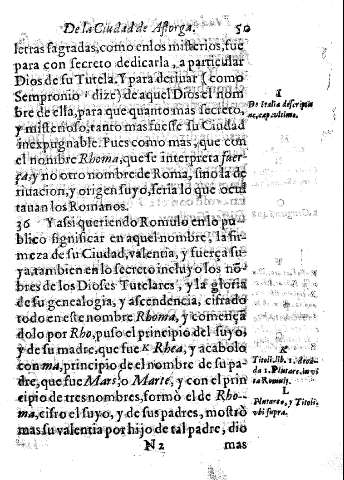 De la Ciudad de Astorga. 50
letras sagradas, como en los misterios, fue
para con secreto dedicarla, a particular
Dios de su Tutela. Y para deriuar (como
Sempronio I dize) de aquel Dios el nom
bre de ella, para que quanto mas secreto,
y misterioso, tanto mas fuesse su Ciudad
inexpugnable. Pues como mas, que con
el nombre Rhoma, que se interpreta fuer
ça, y no otro nombre de Roma, sino la de
riuacion, y origen suyo, seria lo que ocul
tauan los Romanos.
36 Y assi queriendo Romulo en lo pu-
blico significar en aquel nombre, la fir-
meza de su Ciudad, valentia, y fuerça su-
ya, tambien en lo secreto incluyo los nõ-
bres de los Dioses Tutelares, y la gloria
de su genealogia, y ascendencia, cifrado
todo en este nombre Rhoma, y començã
dolo por Rho, puso el principio del suyo,
y de su madre, que fue K Rhea, y acabolo
con ma, principio de el nombre de su pa-
dre, que fue Mars, o Marte, y con el prin
cipio de tres nombres, formò el de Rho-
ma, cifro el suyo, y de sus padres, mostrò
mas su valentia por hijo de tal padre, dio
N2 mas
I
De Italia descriptio
ne, cap. vltimo.
K
Titoli. lib. 1. decada
da 1. Plutarc. in vi
ta Romuli.
L
Plutarco, y Titoli.
vbi supra.